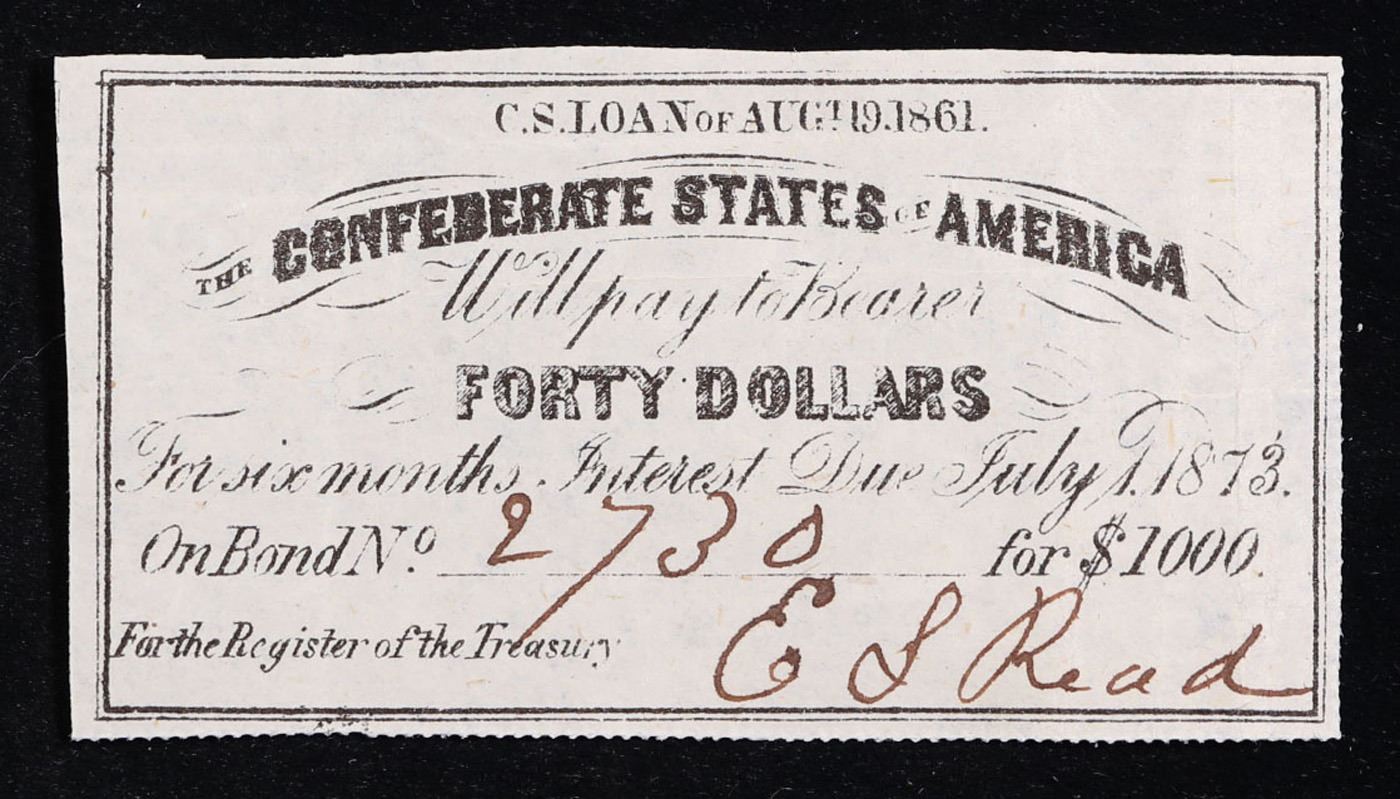 C.S. LOAN OF AUGT. 19. 1861.
THE CONFEDERATE STATES OF AMERICA
Will pay to Bearer
FORTY DOLLARS
For six months Interest Due July 1. 1873.
On Bond No. 2730 for $1000.
For the Register of the Treasury E S Read